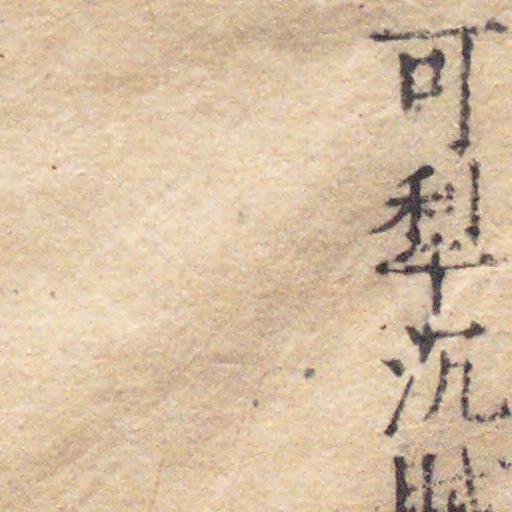 可犁沉